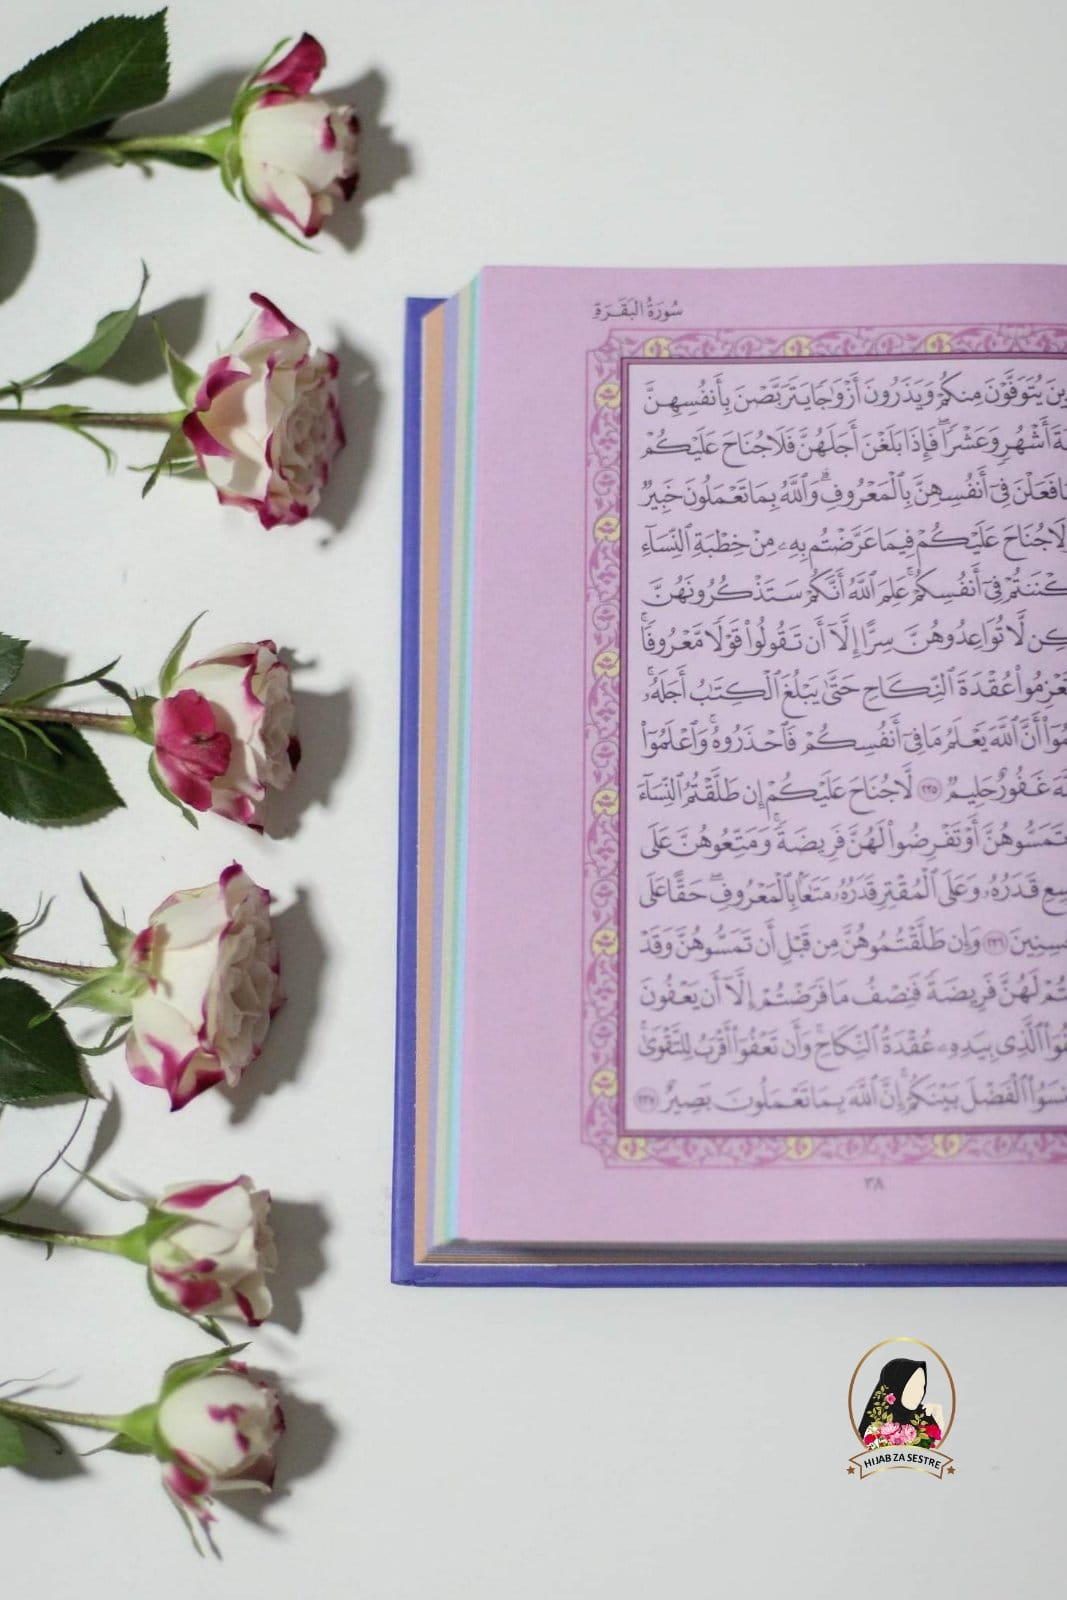 سُورَةُ البَقَرَةِ
يُتَوَفَّوْنَ مِنكُمْ وَيَذَرُونَ أَزْوَٰجًا يَتَرَبَّصْنَ بِأَنفُسِهِنَّ
أَشْهُرٍ وَعَشْرًا ۖ فَإِذَا بَلَغْنَ أَجَلَهُنَّ فَلَا جُنَاحَ عَلَيْكُمْ
فَعَلْنَ فِىٓ أَنفُسِهِنَّ بِٱلْمَعْرُوفِ ۗ وَٱللَّهُ بِمَا تَعْمَلُونَ خَبِيرٌ
لَا جُنَاحَ عَلَيْكُمْ فِيمَا عَرَّضْتُم بِهِۦ مِنْ خِطْبَةِ ٱلنِّسَآءِ
فِىٓ أَنفُسِكُمْ ۚ عَلِمَ ٱللَّهُ أَنَّكُمْ سَتَذْكُرُونَهُنَّ
لَّا تُوَاعِدُوهُنَّ سِرًّا إِلَّآ أَن تَقُولُوا۟ قَوْلًا مَّعْرُوفًا ۚ
عُقْدَةَ ٱلنِّكَاحِ حَتَّىٰ يَبْلُغَ ٱلْكِتَٰبُ أَجَلَهُۥ ۚ
أَنَّ ٱللَّهَ يَعْلَمُ مَا فِىٓ أَنفُسِكُمْ فَٱحْذَرُوهُ ۚ وَٱعْلَمُوٓا۟
غَفُورٌ حَلِيمٌ ٢٣٥ لَّا جُنَاحَ عَلَيْكُمْ إِن طَلَّقْتُمُ ٱلنِّسَآءَ
تَمَسُّوهُنَّ أَوْ تَفْرِضُوا۟ لَهُنَّ فَرِيضَةً ۚ وَمَتِّعُوهُنَّ عَلَى
قَدَرُهُۥ وَعَلَى ٱلْمُقْتِرِ قَدَرُهُۥ مَتَٰعًۢا بِٱلْمَعْرُوفِ ۖ حَقًّا عَلَى
٢٣٦ وَإِن طَلَّقْتُمُوهُنَّ مِن قَبْلِ أَن تَمَسُّوهُنَّ وَقَدْ
لَهُنَّ فَرِيضَةً فَنِصْفُ مَا فَرَضْتُمْ إِلَّآ أَن يَعْفُونَ
ٱلَّذِى بِيَدِهِۦ عُقْدَةُ ٱلنِّكَاحِ ۚ وَأَن تَعْفُوٓا۟ أَقْرَبُ لِلتَّقْوَىٰ ۚ
ٱلْفَضْلَ بَيْنَكُمْ ۚ إِنَّ ٱللَّهَ بِمَا تَعْمَلُونَ بَصِيرٌ ٢٣٧
٣٨
HIJAB ZA SESTRE